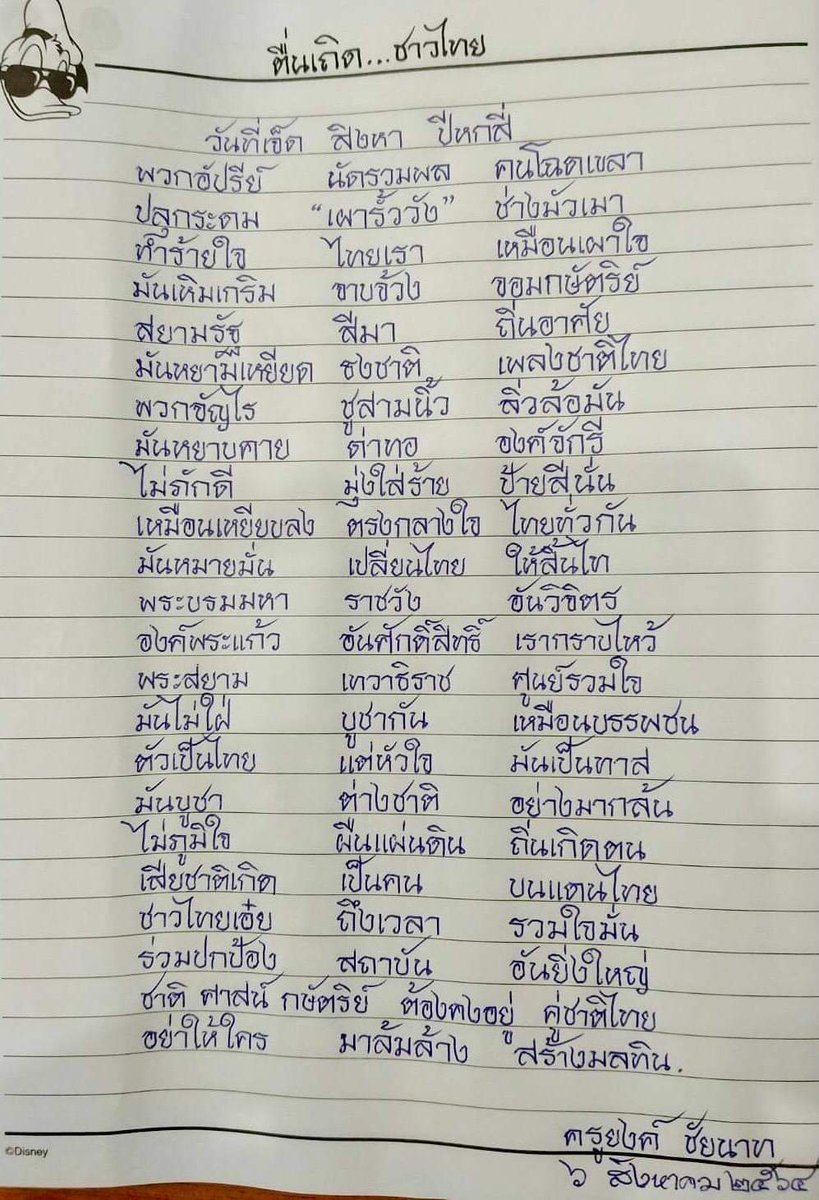 ตื่นเถิด...ชาวไทย
วันที่เจ็ด สิงหา ปีหกสี่
พวกอัปรีย์ นัดรวมพล คนโฉดเขลา
ปลุกระดม "เผารั้ววัง" ช่างมัวเมา
ทำร้ายใจ ไทยเรา เหมือนเผาใจ
มันเหิมเกริม จาบจ้วง จอมกษัตริย์
สยามรัฐ สีมา ถิ่นอาศัย
มันหยามเหยียด ธงชาติ เพลงชาติไทย
พวกจัญไร ชูสามนิ้ว สิ่วล้อมัน
มันหยาบคาย ด่าทอ องค์จักรี
ไม่ภักดี มุ่งใส่ร้าย ป้ายสีนั่น
เหมือนเหยียบลง ตรงกลางใจ ไทยทั่วกัน
มันหมายมั่น เปลี่ยนไทย ให้สิ้นไท
พระบรมมหา ราชวัง อันวิจิตร
องค์พระแก้ว อันศักดิ์สิทธิ์ เรากราบไหว้
พระสยาม เทวาธิราช ศูนย์รวมใจ
มันไม่ใฝ่ บูชากัน เหมือนบรรพชน
ตัวเป็นไทย แต่หัวใจ มันเป็นทาส
มันบูชา ต่างชาติ อย่างมากล้น
ไม่ภูมิใจ ผืนแผ่นดิน ถิ่นเกิดตน
เสียชาติเกิด เป็นคน บนแดนไทย
ชาวไทยเอ๋ย ถึงเวลา รวมใจมั่น
ร่วมปกป้อง สถาบัน อันยิ่งใหญ่
ชาติ ศาสน์ กษัตริย์ ต้องคงอยู่ คู่ชาติไทย
อย่าให้ใคร มาล้มล้าง สร้างมลทิน.
ครูยงค์ ชัยนาท
๖ สิงหาคม ๒๕๖๔
©Disney